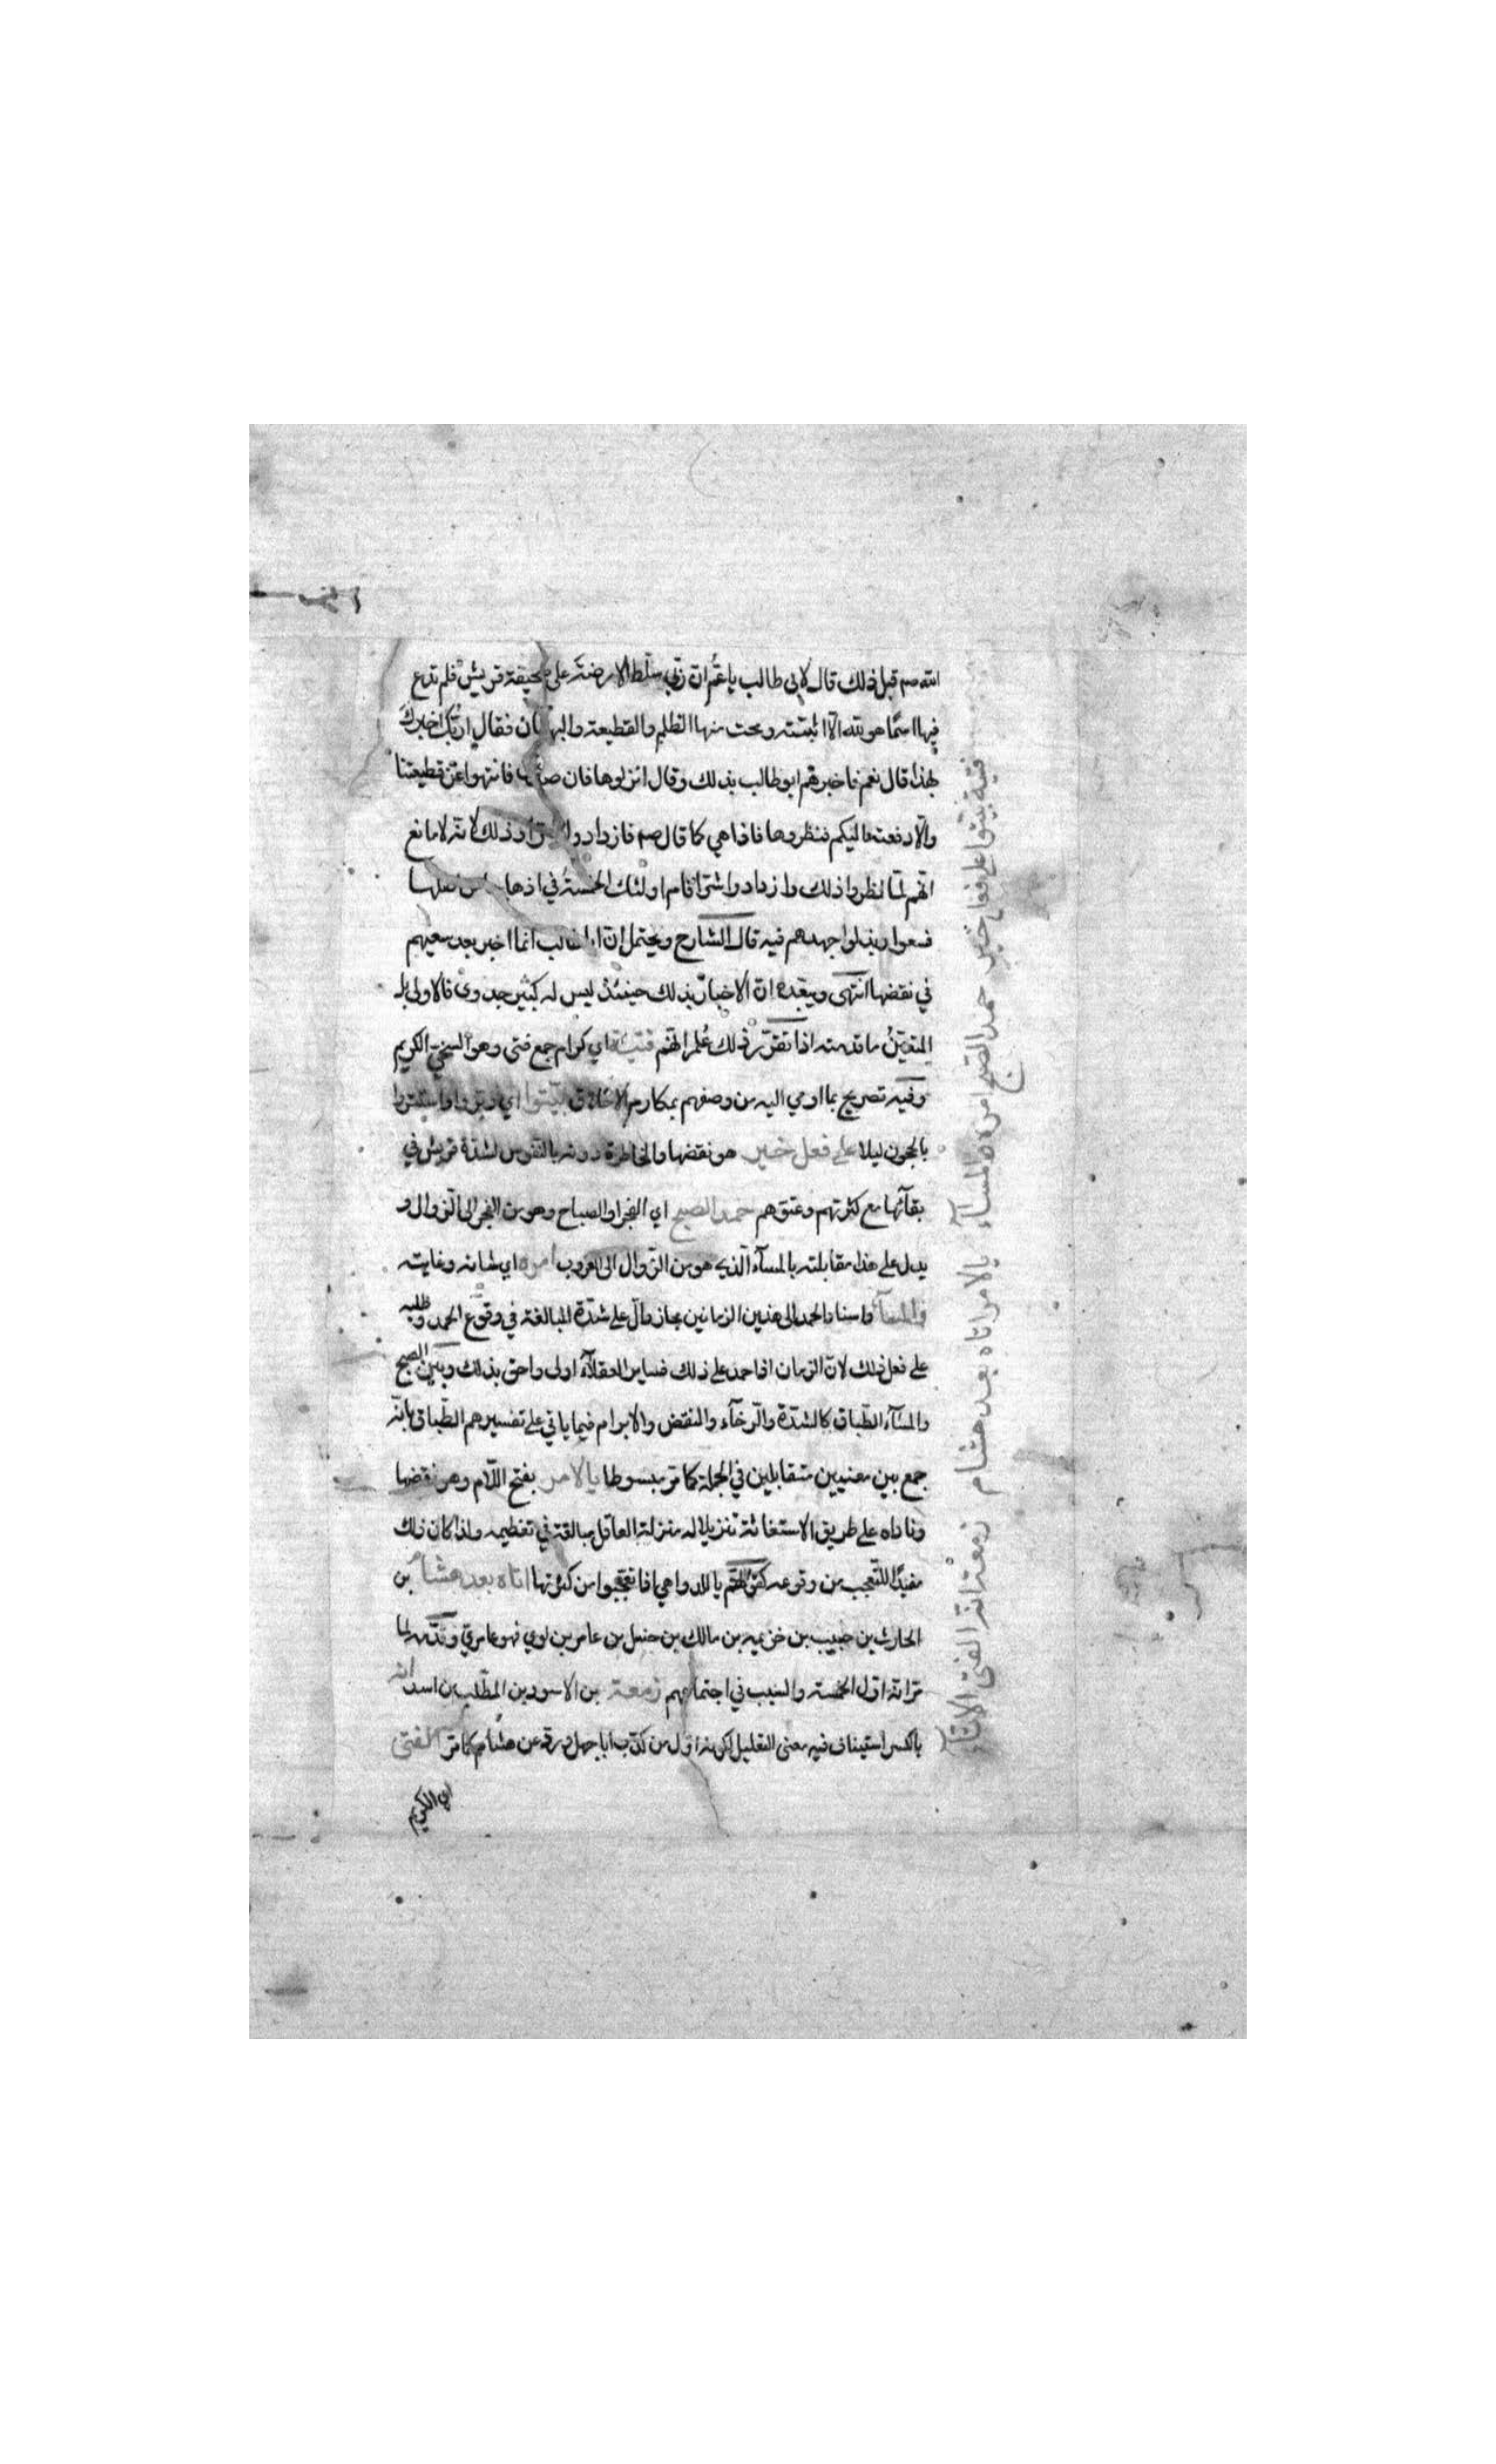 الله صم قبل ذلك قال لابى طالب ياعم ان ربي سلط الارضة على صحيفة قريش فلم تدع
فيها اسما هو لله الا اثبتته ومحت منها الظلم والقطيعة والبهتان فقال اربك اخبرك
بهذا قال نعم فاخبرهم ابو طالب بذلك وقال انزلوها فان فانتهوا عن قطيعتنا
والا دفعته اليكم فنظروها فاذا هي كما قال صم فازدادوا وذلك لانه لا مانع
انهم لما نظروا ذلك وازدادوا شرا قام اولئك الخمسة في اذهاب من فعلها
فسعوا وبذلوا جهدهم فيه قال الشارح ويحتمل ان ابا طالب انما اخبر بعد سعيهم
في نقضها انتهى ويبعده ان الاخبار بذلك حينئذ ليس له كثير جدوى فالاولى بل
المتعين ما قدمته اذا تقرر ذلك علم انهم فتية اي كرام جمع فتى وهو السخي الكريم
وفيه تصريح بما اومي اليه من وصفهم بمكارم الاخلاق بيتوا اي
بالحجون ليلا على فعل خير هو نقضها والمخاطرة دونه بالنفوس لشدة قريش في
بقآئها مع كثرتهم وعتوهم حمد الصبح اي الفجر او الصباح وهو من الفجر الى الزوال و
يدل على هذا مقابلته بالمسآء الذي هو من الزوال الى الغروب امره اي شانه وغايته
والمسآء واسناد الحمد الى هذين الزمانين مجاز دال على شدة المبالغة في وقوع الحمد وطلبه
على فعل ذلك لان الزمان اذا حمد على ذلك فساير العقلآء اولى واحق بذلك وبين الصبح
والمسآء الطباق كالشدة والرخآء والنقض والابرام فيما ياتي على تفسيرهم الطباق بانه
جمع بين معنيين متقابلين في الجملة كما مر مبسوطا يالامر بفتح اللام وهو نقضها
وناداه على طريق الاستغاثة تنزيلا له منزلة العاقل مبالغة في تعظيمه ولذا كان ذلك
مفيدا للتعجب من وقوعه كقولهم ياللدواهي اذا تعجبوا من كثرتها اتاه بعد هشام بن
الحارث بن حبيب بن خزيمه بن مالك بن حنبل بن عامر بن لوي فهو عامري وقدمه لما
مر انه اول الخمسة والسبب في اجتماعهم زمعة بن الاسود بن المطلب بن اسد انه
بالكسر استيناف فيه معنى التعليل لكونه اول من كذب ابا جهل ورد عن هشام كما مر الفتى
اي الكريم
فتية بيتوا على فعل خير حمد الصبح امره والمسآء
يالامر اتاه بعد هشام زمعة انه الفتى الاتآء